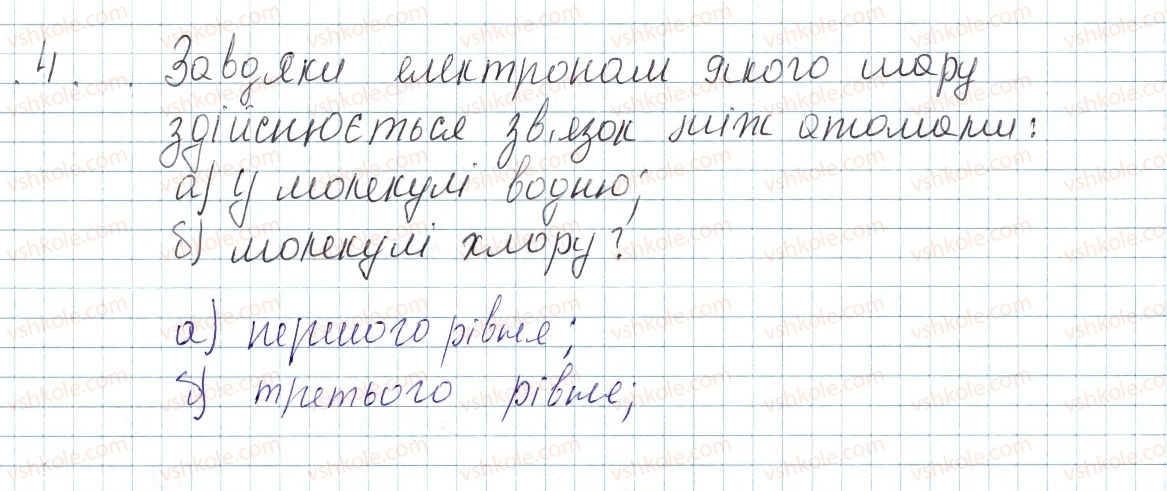 4. Завдяки електронам якого шару
здійснюється зв'язок між атомами:
а) у молекулі водню;
б) молекулі хлору?
а) першого рівня;
б) третього рівня;